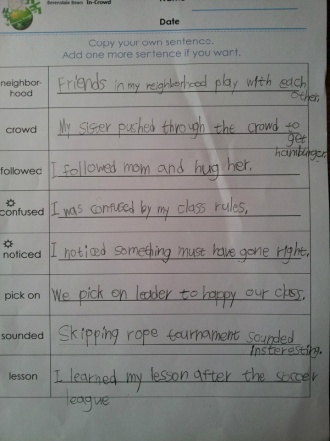 Riverdale Bears In-Crowd
Date
Copy your own sentence.
Add one more sentence if you want.
neighbor-
hood
Friends in my neighborhood play with each
other.
crowd
My sister pushed through the crowd to
get
hamburger.
followed
I followed mom and hug her.
confused
I was confused by my class rules.
noticed
I noticed something must have gone right.
pick on
We pick on leader to happy our class.
sounded
Skipping rope tournament sounded
Insteresting.
lesson
I learned my lesson after the soccer
league